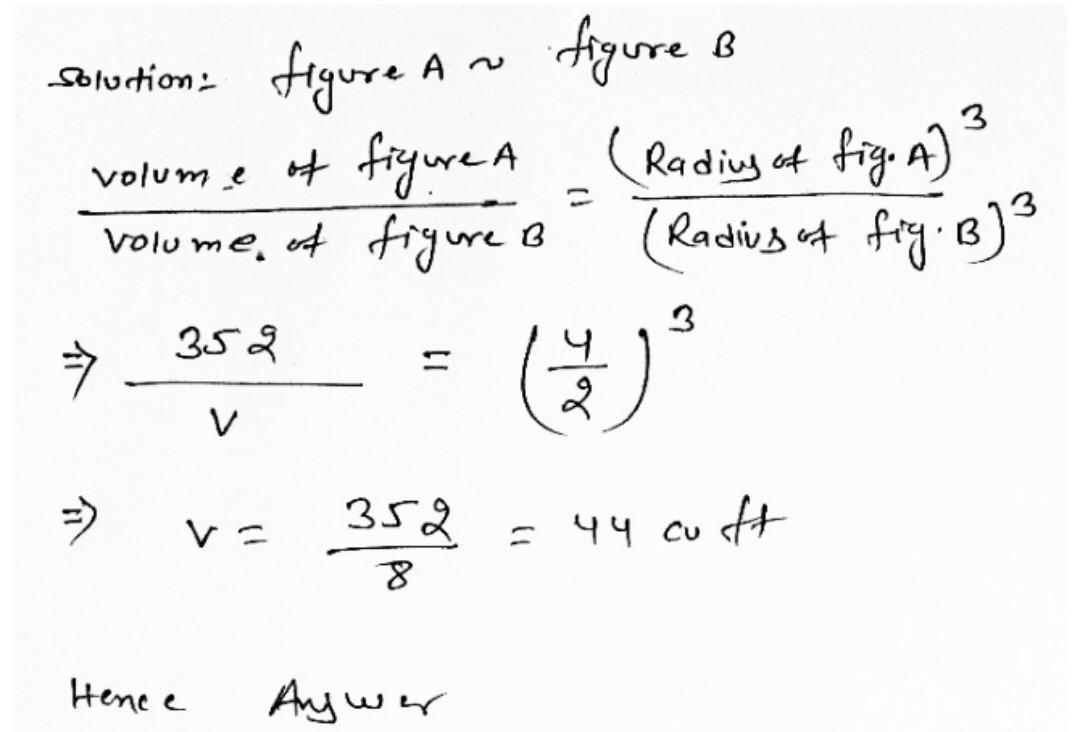 Solution: figure A ~ figure B
volume of figure A / volume of figure B = (Radius of fig. A)³ / (Radius of fig. B)³
⇒ 352 / V = (4/2)³
⇒ V = 352 / 8 = 44 cu ft
Hence Answer